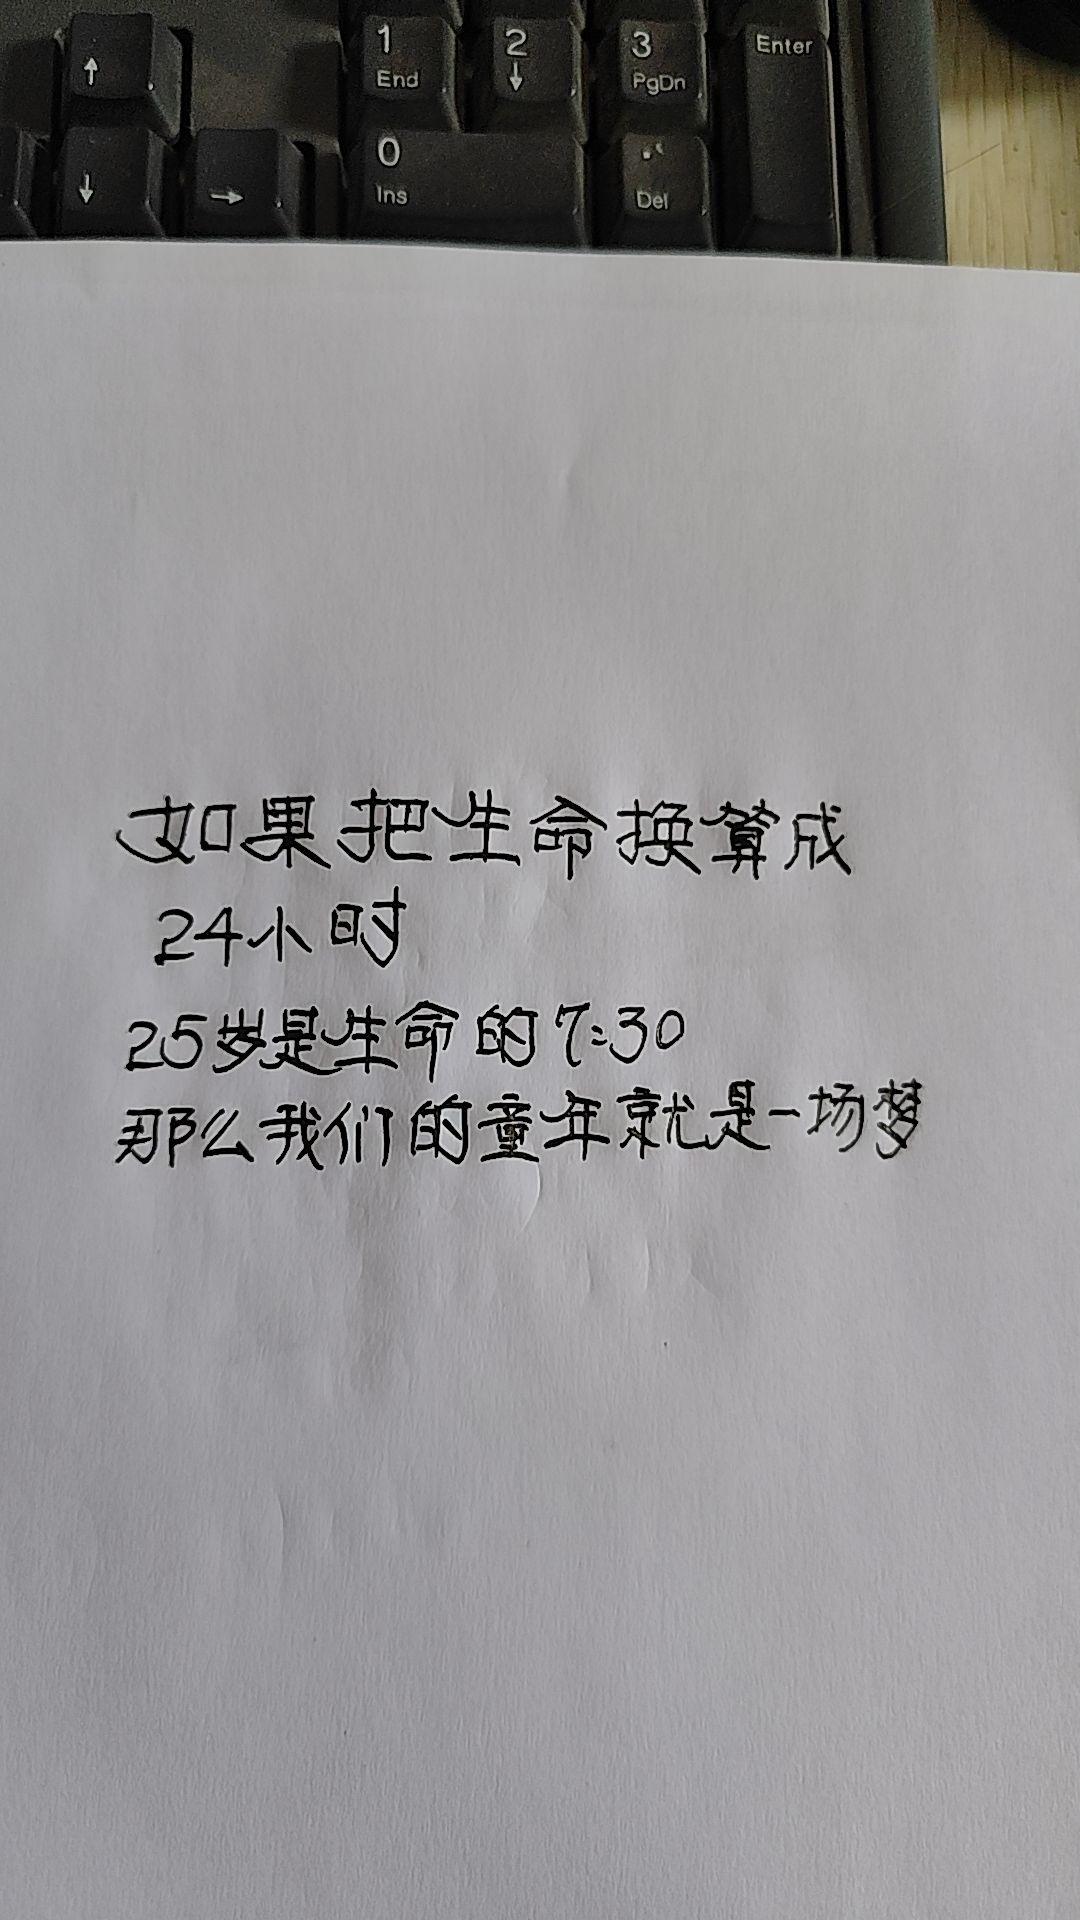 ↑ 1 2 3 Enter
End ↓ PgDn
↓ → 0 .
Ins Del
如果把生命换算成
24小时
25岁是生命的7:30
那么我们的童年就是一场梦